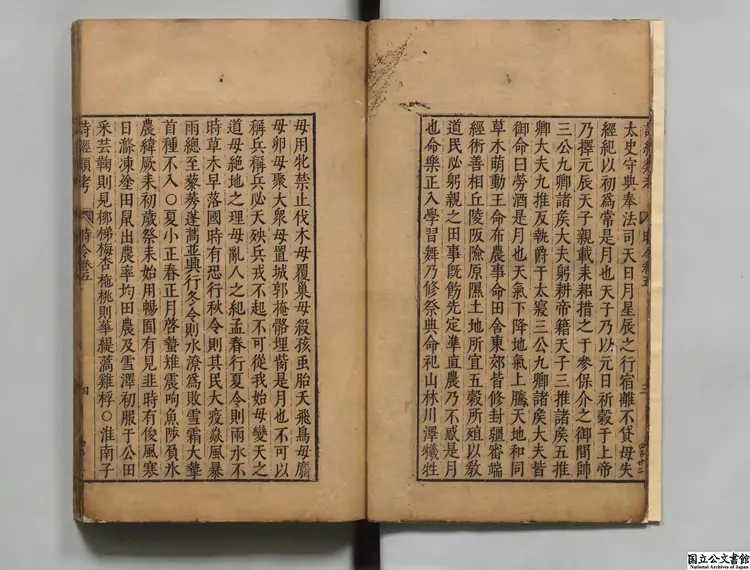 太史守典奉法司天日月星辰之行宿離不貸毋失
經紀以初為常是月也天子乃以元日祈穀于上帝
乃擇元辰天子親載耒耜措之于參保介之御間帥
三公九卿諸矦大夫躬耕帝籍天子三推諸矦五推
卿大夫九推反執爵于太寢三公九卿諸矦大夫皆
御命曰勞酒是月也天氣下降地氣上騰天地和同
草木萌動王命布農事命田舍東郊皆修封疆審端
經術善相丘陵阪險原隰土地所宜五穀所殖以敎
道民必躬親之田事旣飭先定準直農乃不惑是月
也命樂正入學習舞乃修祭典命祀山林川澤犧牲
毋用牝禁止伐木毋覆巢毋殺孩虫胎夭飛鳥毋麛
毋卵毋聚大衆毋置城郭掩骼埋胔是月也不可以
稱兵稱兵必天殃兵戎不起不可從我始毋變天之
道毋絶地之理毋亂人之紀孟春行夏令則雨水不
時草木早落國時有恐行秋令則其民大疫猋風暴
雨總至藜莠蓬蒿並興行冬令則水潦爲敗雪霜大摯
首種不入○夏小正春正月啓蟄雉震呴魚陟負氷
農緯厥耒初歲祭耒始用暢囿有見韭時有俊風寒
日滌凍塗田鼠出農率均田農及雪澤初服于公田
采芸鞠則見栁梯梅杏杝桃則華緹蒿雞桴○淮南子
詩經類考 時令卷五 四
国立公文書館
National Archives of Japan